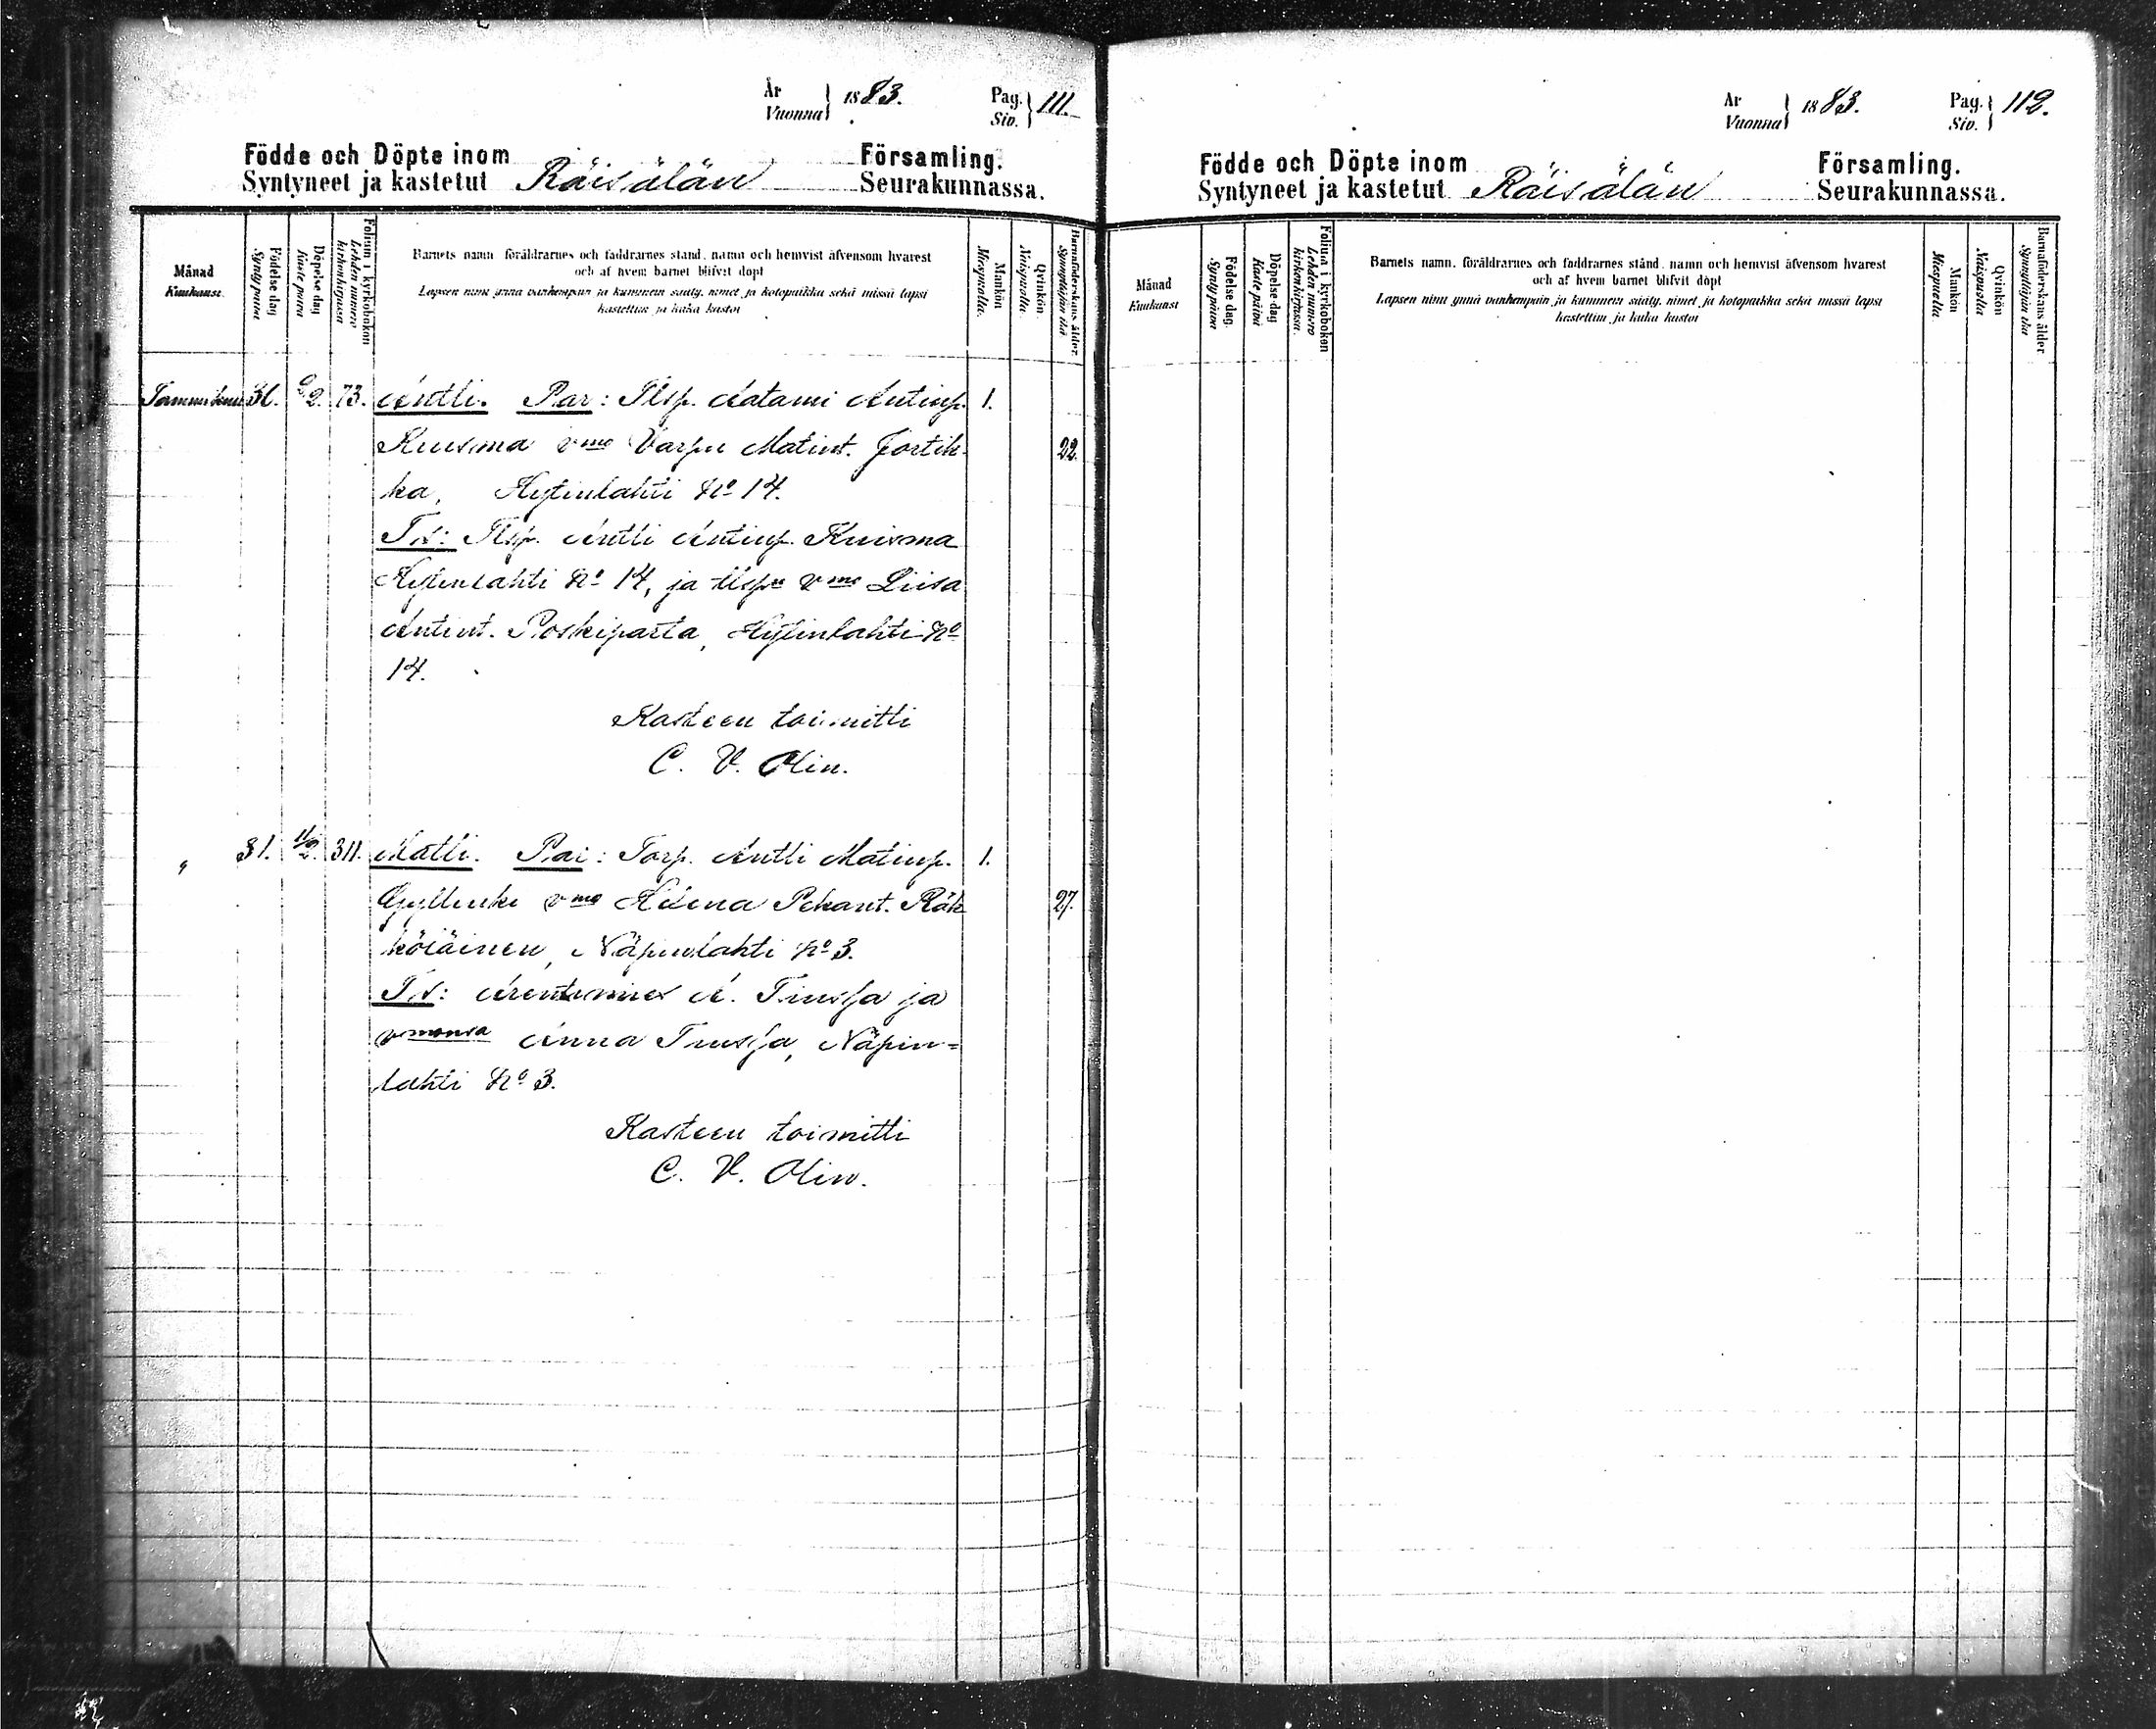 År
Vuonna } 1883.
Pag.
Siv. } 111.
Födde och Döpte inom Församling.
Syntyneet ja kastetut Räisälän Seurakunnassa.
Månad
Kuukausi.
Födelse dag
Synty päivä
Döpelse dag
Kaste päivä
Folium i kyrkoboken
Lehden numero
kirkonkirjassa
Barnets namn föräldrarnes och faddrarnes stånd, namn och hemvist äfvensom hvarest
och af hvem barnet blifvit döpt
Lapsen nimi ynnä vanhempain ja kummein sääty, nimet ja kotopaikka sekä missä lapsi
kastettiin ja kuka kastoi
Mankön
Miespuolta.
Qvinkön
Naispuolta.
Barnaföderskans ålder.
Synnyttäjän ikä
31. 2. 73. Antti. Par: Tlsp. Aatami Antinp. 1.
Kuisma vmo Varpu Matint. Jortik- 22.
ka, Hytinlahti No 14.
T.s: Tlsp. Antti Antinp. Kuisma
Hytinlahti No 14, ja tlspn vmo Liisa
Antint. Poskiparta, Hytinlahti No
14.
Kasteen toimitti
C. V. Olin.
" 31. 11/2. 311. Matti. Par: Torp. Antti Matinp. 1.
vmo Helena Pekant. Räk- 27.
köläinen, Näpinlahti No 3.
T.s: A. ja
vmonsa Anna Näpin=
lahti No 3.
Kasteen toimitti
C. V. Olin.
År
Vuonna } 1883.
Pag.
Siv. } 112.
Födde och Döpte inom Församling.
Syntyneet ja kastetut Räisälän Seurakunnassa.
Månad
Kuukausi
Födelse dag.
Synty päivä
Döpelse dag
Kaste päivä
Folium i kyrkoboken
Lehden numero
kirkonkirjassa.
Barnets namn, föräldrarnes och faddrarnes stånd, namn och hemvist äfvensom hvarest
och af hvem barnet blifvit döpt
Lapsen nimi ynnä vanhempain ja kummein sääty, nimet ja kotopaikka sekä missä lapsi
kastettiin ja kuka kastoi
Mankön
Miespuolta
Qvinkön
Naispuolta
Barnaföderskans ålder
Synnyttäjän ikä